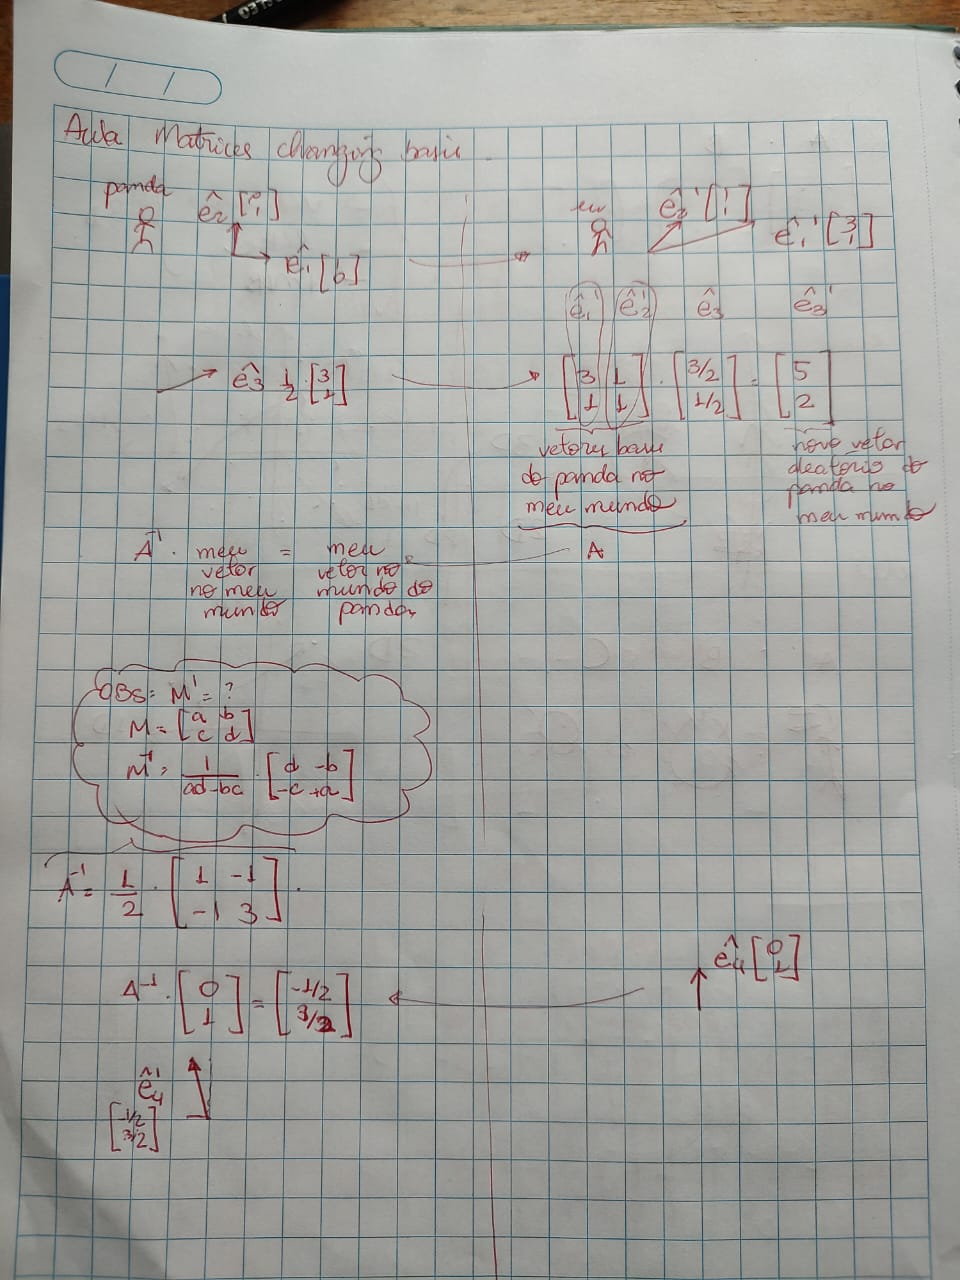 Aula Matrices changing basis
panda
ê₂ [0 1]
ê₁ [b]
eu
ê₂' [1 1]
ê₁' [3 1]
ê₁' ê₂' ê₃ ê₃'
ê₃ 1/2 · [3 1]
[3 1; 1 1] · [3/2 1/2] = [5 2]
vetores base
do panda no
meu mundo
novo vetor
aleatorio do
panda no
meu mundo
A
A⁻¹ · meu = meu
vetor vetor no
no meu mundo do
mundo panda
OBS= M⁻¹ = ?
M = [a b; c d]
M⁻¹ = 1/(ad-bc) · [d -b; -c +a]
A⁻¹ = 1/2 · [1 -1; -1 3] .
ê₄ [0 1]
A⁻¹ · [0 1] = [-1/2 3/2]
ê₄'
[-1/2 3/2]